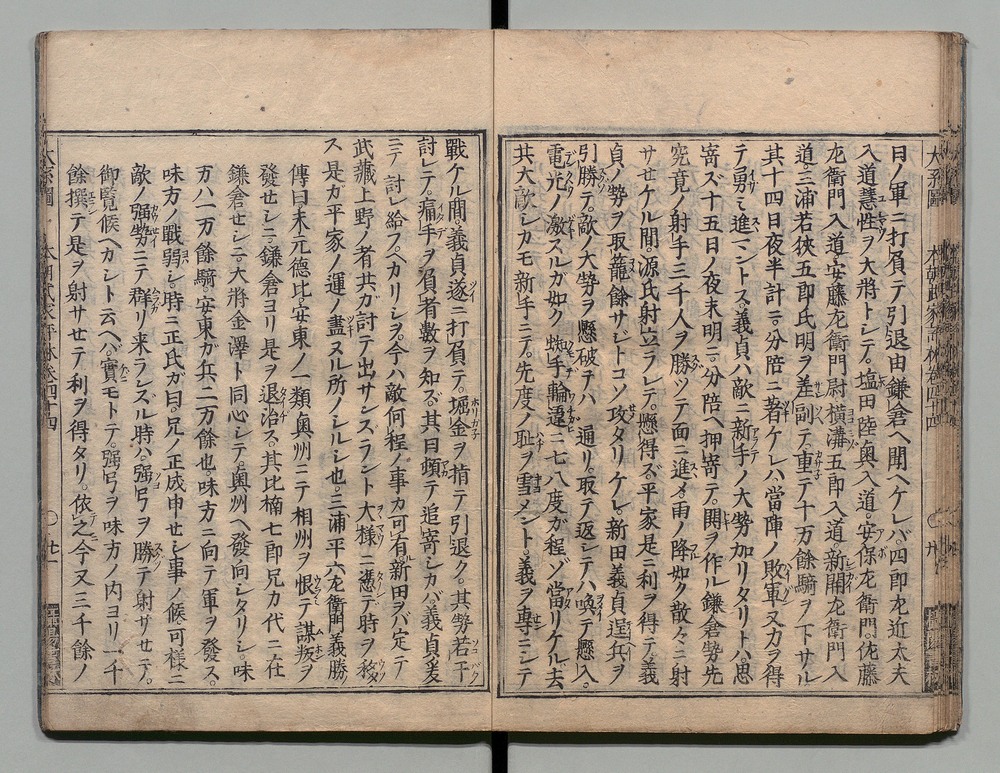 日ノ軍ニ打負テ引退由鎌倉ヘ聞ヘケレバ四郎左近太夫
入道慧性ヲ大將トシテ。塩田陸奥入道。安保左衛門。佐藤
左衛門入道。安藤左衛門尉横溝五郎入道新開左衛門入
道。三浦若狹五郎氏明ヲ差副テ。重テ十万餘騎ヲ下サル
其十四日夜半計ニ。分陪ニ著ケレハ當陣ノ敗軍又力ヲ得
テ勇ミ進マントス義貞ハ敵ニ新手ノ大勢加リタリトハ思
寄ズ十五日ノ夜未明ニ。分陪ヘ押寄テ。鬨ヲ作ル鎌倉勢先
究竟ノ射手三千人ヲ勝ツテ面ニ進メ。雨ノ降如ク散々ニ射
サセケル間。源氏射立ラレテ。懸得ズ平家是ニ利ヲ得テ義
貞ノ勢ヲ取籠餘サジトコソ攻タリケレ。新田義貞逞兵ヲ
引勝テ。敵ノ大勢ヲ懸破テハ。通リ。取テ返シテハ。喚テ懸入。
電光ノ激スルガ如ク。蜘手輪違ニ七八度ガ程ゾ當リケル去
共大敵シカモ新手ニテ。先度ノ恥ヲ雪メント。義ヲ專ニシテ
戰ケル間。義貞遂ニ打負テ。堀金ヲ指テ引退ク。其勢若干
討レテ。痛手ヲ負者數ヲ知ズ。其日頓テ追寄シカバ義貞爰
ニテ討レ給フヘカリシヲ。今ハ敵何程ノ事カ可有新田ヲバ定テ
武藏上野ノ者共ガ討テ出サンスラント大様ニ憑テ時ヲ移
ス是カ平家ノ運ノ盡ヌル所ノシルシ也。三浦平六左衛門義勝
傳曰末元德比。安東ノ一類奥州ニテ相州ヲ恨テ謀叛ヲ
發セシニ鎌倉ヨリ是ヲ退治ス。其比楠七郎兄カ代ニ在
鎌倉セシニ。大將金澤ト同心シテ。奥州ヘ發向シタリシ味
方八万餘騎。安東ガ兵二万餘也。味方ニ向テ軍ヲ發ス。
味方ノ戰弱シ。時ニ正氏ガ曰。兄ノ正成申セシ事ノ候可様ニ
敵ノ强勢ニテ群リ來ランズル時ハ。强弓ヲ勝テ射サセテ。
御覽候ヘカシト云ヘバ。實モトテ。强弓ヲ味方ノ内ヨリ一千
餘撰テ是ヲ射サセテ利ヲ得タリ。依之今又三千餘ノ